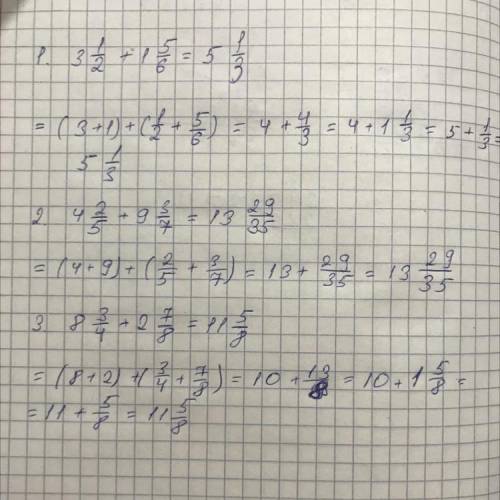 1. 3 1/2 + 1 5/6 = 5 1/3
= (3+1) + (1/2 + 5/6) = 4 + 4/3 = 4 + 1 1/3 = 5 + 1/3 =
5 1/3
2. 4 2/5 + 9 3/7 = 13 29/35
= (4+9) + (2/5 + 3/7) = 13 + 29/35 = 13 29/35
3. 8 3/4 + 2 7/8 = 11 5/8
= (8+2) + (3/4 + 7/8) = 10 + 13/8 = 10 + 1 5/8 =
= 11 + 5/8 = 11 5/8